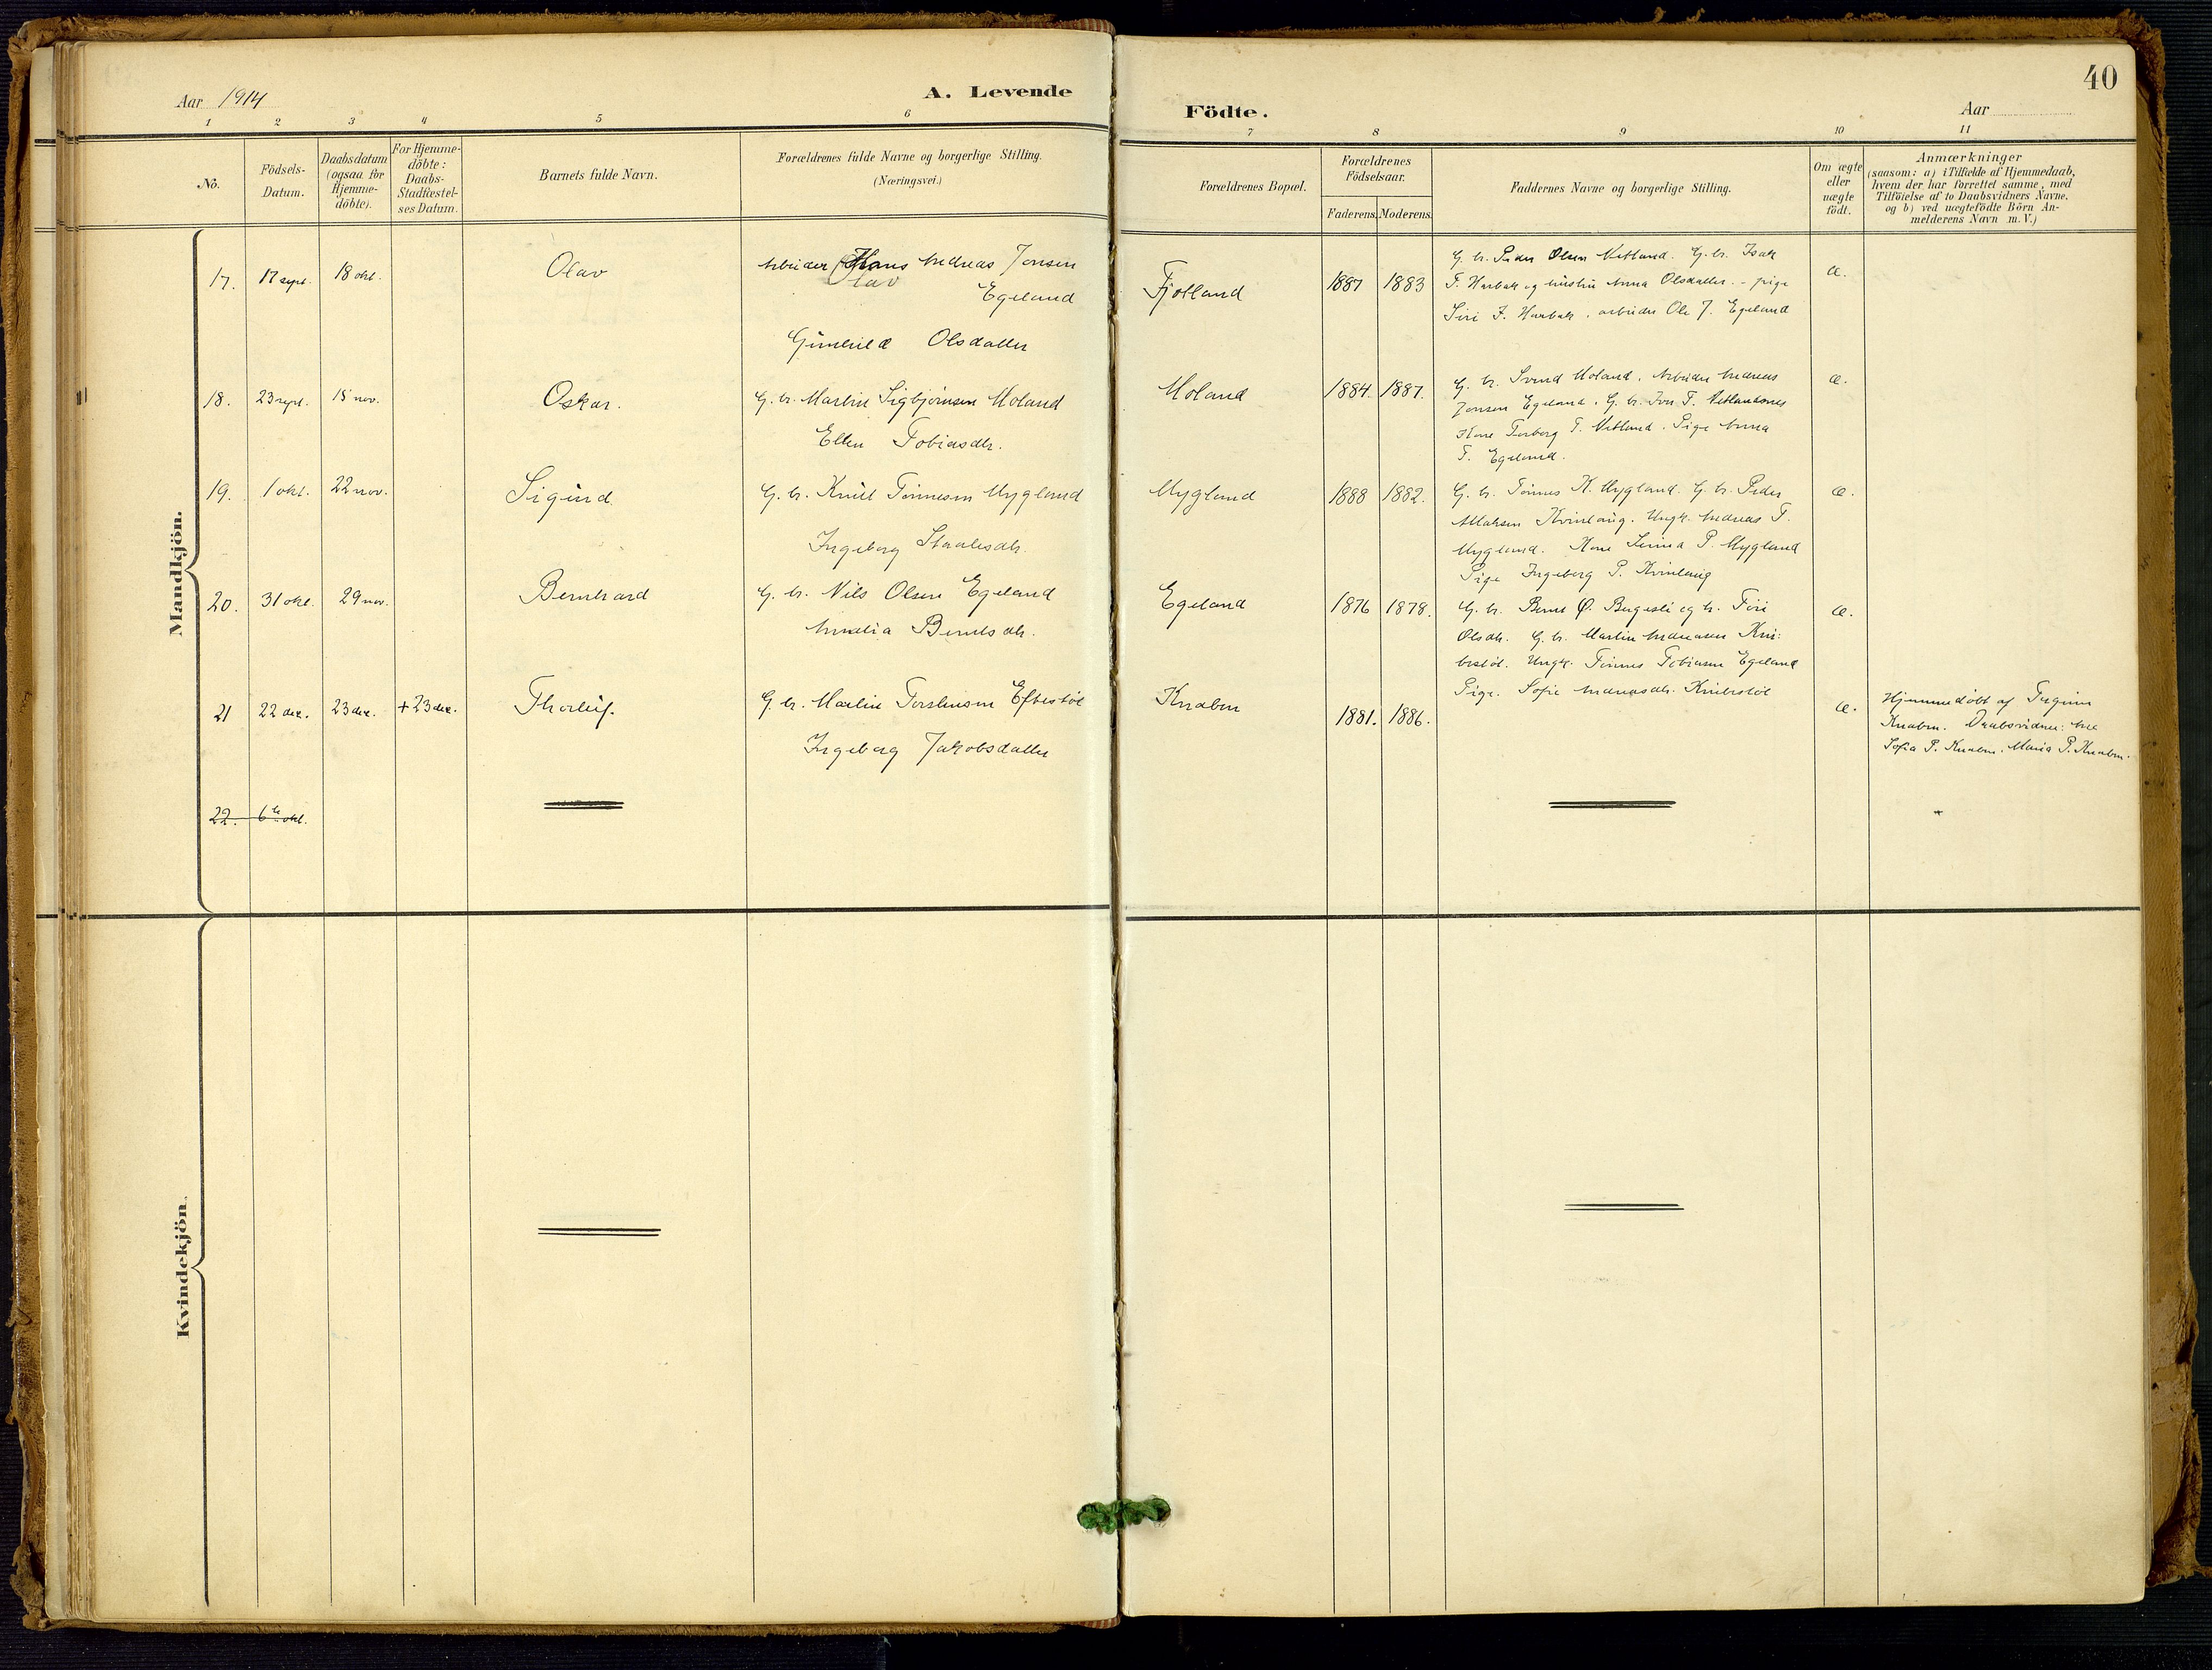 40
Aar 1914
A. Levende
Födte.
Aar
1 2 3 4 5 6 7 8 9 10 11
No.
Födsels-
Datum.
Daabsdatum
(ogsaa for
Hjemme-
döbte).
For Hjemme-
döbte:
Daabs-
Stadfæstel-
ses Datum.
Barnets fulde Navn.
Forældrenes fulde Navne og borgerlige Stilling.
(Næringsvei.)
Forældrenes Bopæl.
Forældrenes
Födselsaar.
Faderens. Moderens.
Faddernes Navne og borgerlige Stilling.
Om ægte
eller
uægte
födt.
Anmærkninger
(saasom: a) i Tilfælde af Hjemmedaab,
hvem der har forrettet samme, med
Tilföielse af to Daabsvidners Navne.
og b) ved uægtefödte Börn An-
melderens Navn m. V.)
Mandkjön.
17. 17 sept. 18 okt. Olav
Arbeider Hans Andreas Jonsen
Olav
Egeland
Gunhild Olsdatter
Fjotland 1887 1883
G. br. Peder Olsen Netland. G. br. Isak
T. Harbak og hustru Anna Olsdatter. - pige
Siri I. Harbak. arbeider Ole J. Egeland
æ.
18. 23 sept. 15 nov. Oskar.
G. br. Martin Sigbjørnsen Moland
Ellen Tobiasdtr.
Moland 1884. 1887.
G. br. Svend Moland. Arbeider Andreas
Jonsen Egeland. G. br. T. Netlandsnes
Kone Torborg T. Netland. Pige Anna
T. Egeland.
æ.
19. 1 okt. 22 nov. Sigurd
G. br. Knut Tønnesen Mygland
Ingeborg Staalesdtr.
Mygland 1888 1882.
G. br. Tønnes K. Mygland. G. br. Peder
Kvinlaug. Ungk. Andreas T.
Mygland. Kone P. Mygland
Pige Ingeborg P. Kvinlaug
æ.
20. 31 okt. 29 nov. Bernhard
G. br. Nils Olsen Egeland
Amalia Berntsdtr.
Egeland 1876 1878.
G. br. Bernt Ø. Bergesli og h. Tori
Olsdtr. G. br. Martin Andreasen Kni:
bestøl. Ungk. Tønnes Tobiasen Egeland
Pige. Sofie Andreasdtr. Knibestøl
æ.
21 22 dec. 23 dec. + 23 dec. Thorleif.
G. br. Martin Torstensen Eftestøl
Ingeborg Jakobsdatter
Knaben 1881. 1886.
æ.
Hjemmedöbt af Torginn
Knaben. Daabsvidner: Ane
Sofia P. Knaben. Maria P. Knaben.
22. 6te okt.
Kvindekjön.